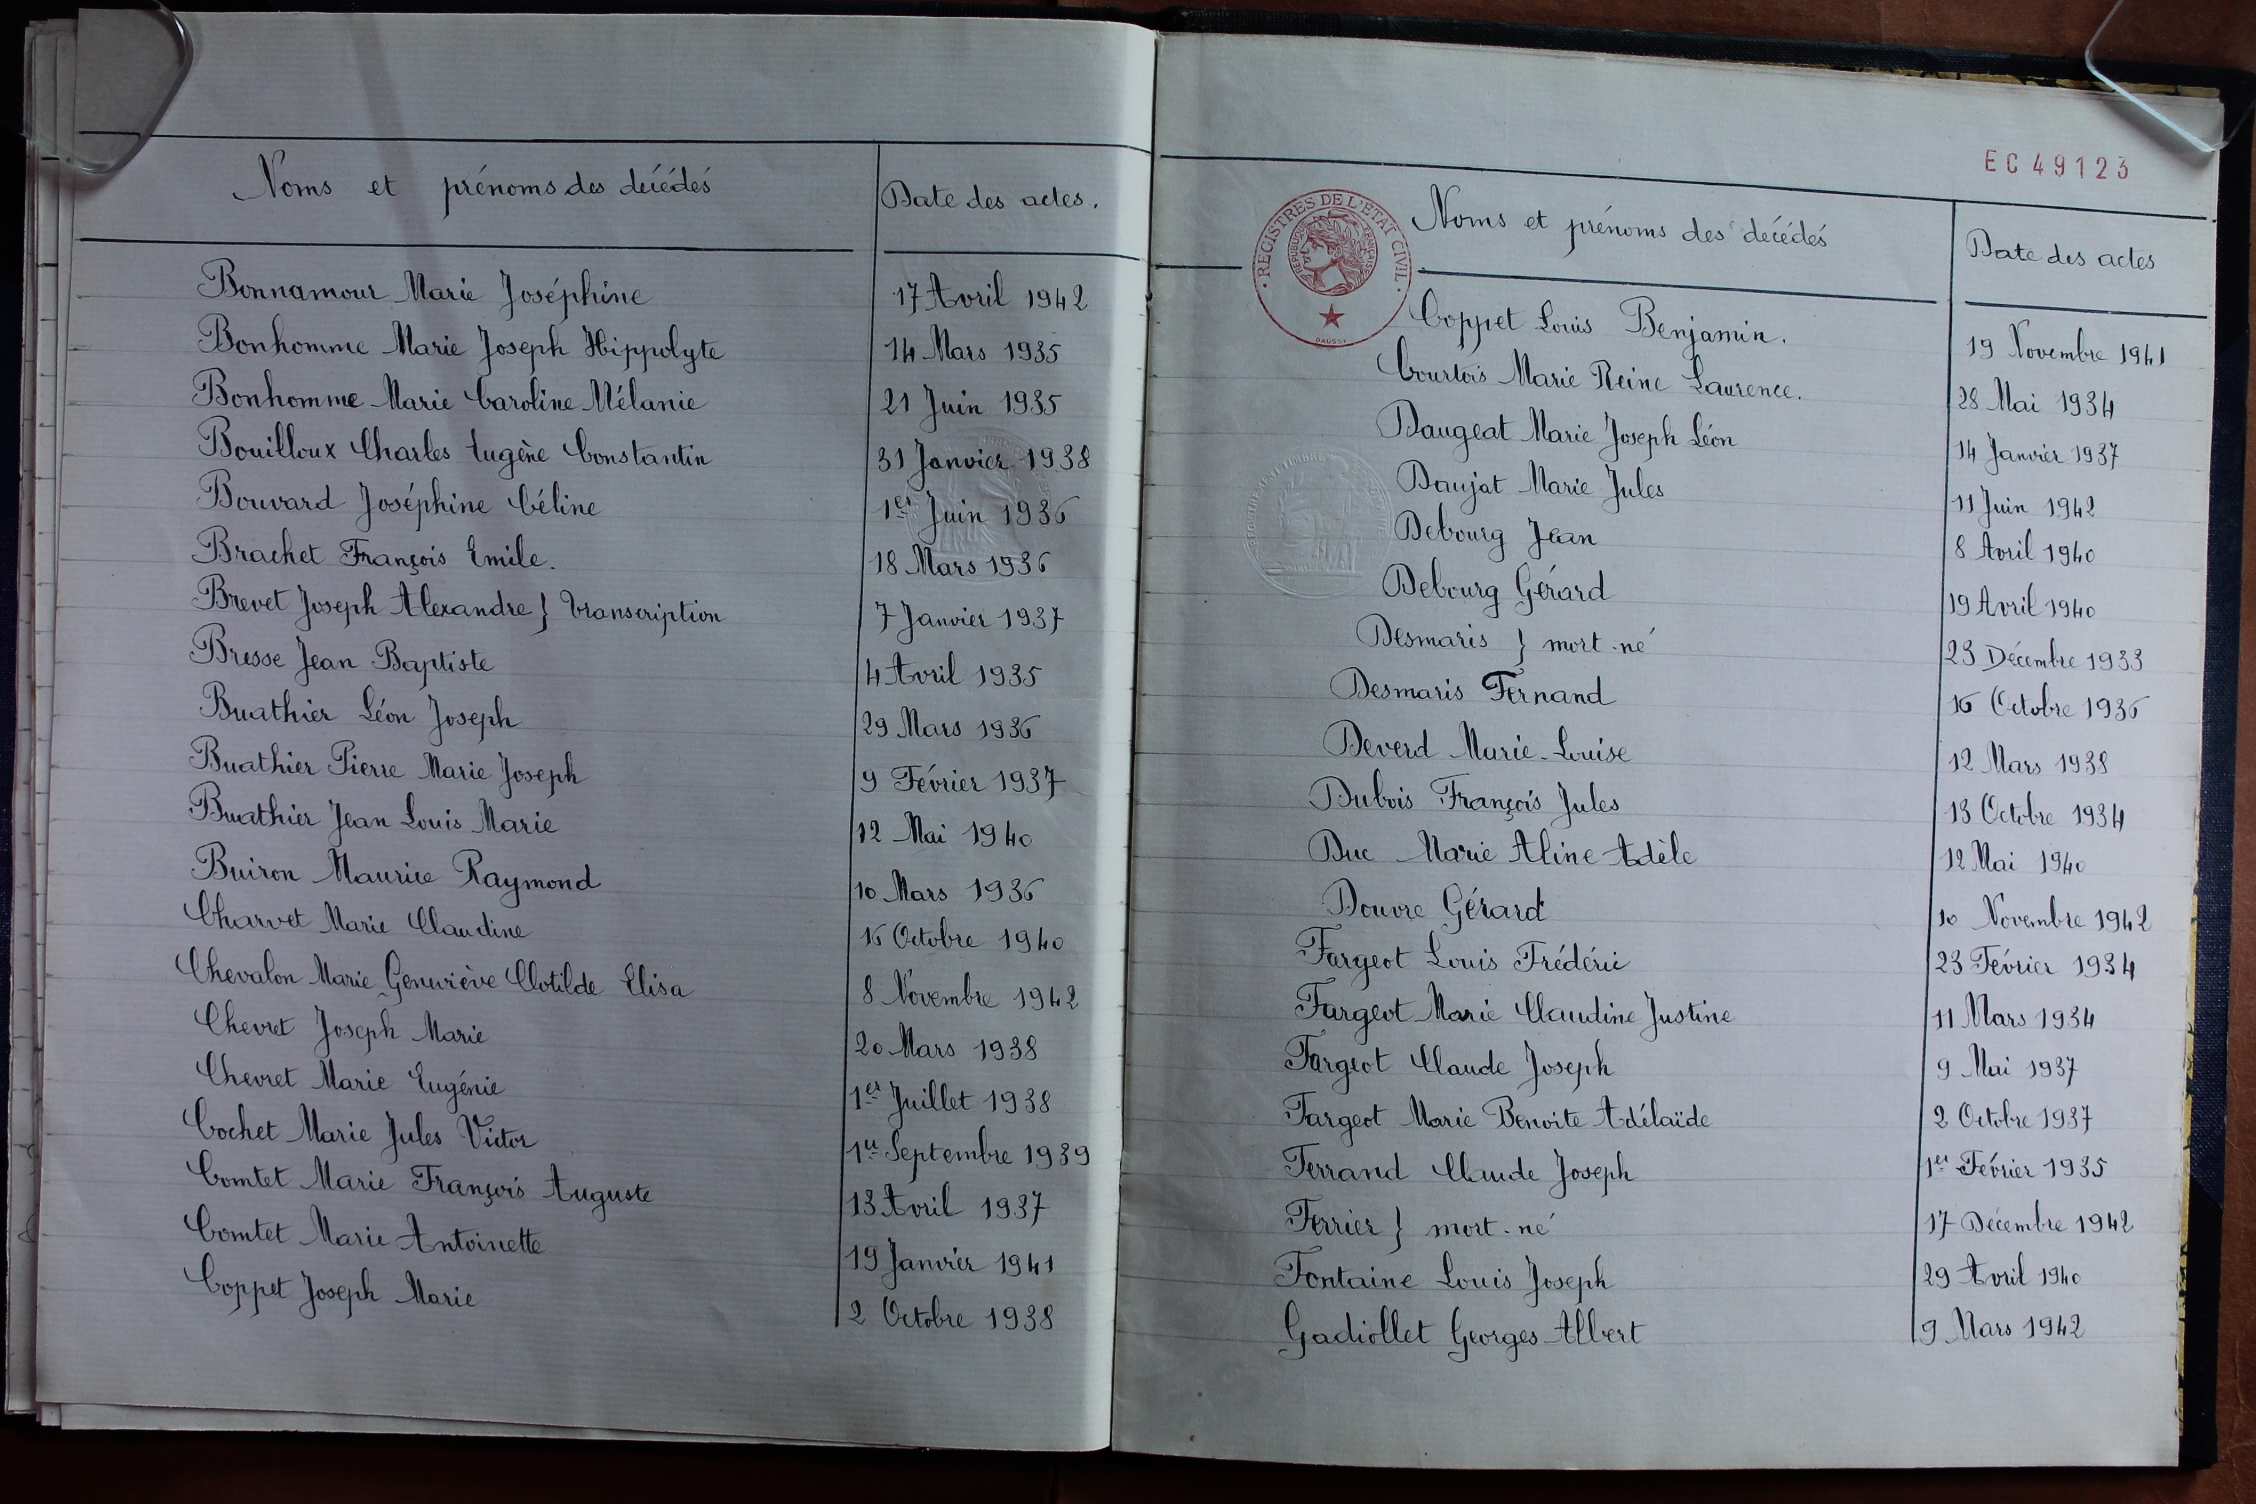 Noms et prénoms des décédés Date des actes.
Bonnamour Marie Joséphine 17 Avril 1942
Bonhomme Marie Joseph Hippolyte 14 Mars 1935
Bonhomme Marie Caroline Mélanie 21 Juin 1935
Bouilloux Charles Eugène Constantin 31 Janvier 1938
Bouvard Joséphine Céline 1er Juin 1936
Brachet François Emile. 18 Mars 1936
Brevet Joseph Alexandre } transcription 7 Janvier 1937
Bresse Jean Baptiste 4 Avril 1935
Buathier Léon Joseph 29 Mars 1936
Buathier Pierre Marie Joseph 9 Février 1937
Buathier Jean Louis Marie 12 Mai 1940
Buiron Maurice Raymond 10 Mars 1936
Charvet Marie Claudine 16 Octobre 1940
Chevalon Marie Geneviève Clotilde Elisa 8 Novembre 1942
Chevret Joseph Marie 20 Mars 1938
Chevret Marie Eugénie 1er Juillet 1938
Cochet Marie Jules Victor 1er Septembre 1939
Comtet Marie François Auguste 13 Avril 1937
Comtet Marie Antoinette 19 Janvier 1941
Coppet Joseph Marie 2 Octobre 1938
EC 49123
REGISTRES DE L'ETAT CIVIL
REPUBLIQUE FRANÇAISE
DAUSSY
Noms et prénoms des décédés Date des actes
Coppet Louis Benjamin. 19 Novembre 1941
Courtois Marie Reine Laurence. 28 Mai 1934
Daugeat Marie Joseph Léon 14 Janvier 1937
Daujat Marie Jules 11 Juin 1942
Debourg Jean 8 Avril 1940
Debourg Gérard 19 Avril 1940
Desmaris } mort-né 23 Décembre 1933
Desmaris Fernand 16 Octobre 1936
Deverd Marie-Louise 12 Mars 1938
Dubois François Jules 13 Octobre 1934
Duc Marie Aline Adèle 12 Mai 1940
Douvre Gérard 10 Novembre 1942
Fargeot Louis Frédéric 23 Février 1934
Fargeot Marie Claudine Justine 11 Mars 1934
Fargeot Claude Joseph 9 Mai 1937
Fargeot Marie Benoite Adélaïde 2 Octobre 1937
Ferrand Claude Joseph 1er Février 1935
Ferrier } mort-né 17 Décembre 1942
Fontaine Louis Joseph 29 Avril 1940
Gadiollet Georges Albert 9 Mars 1942